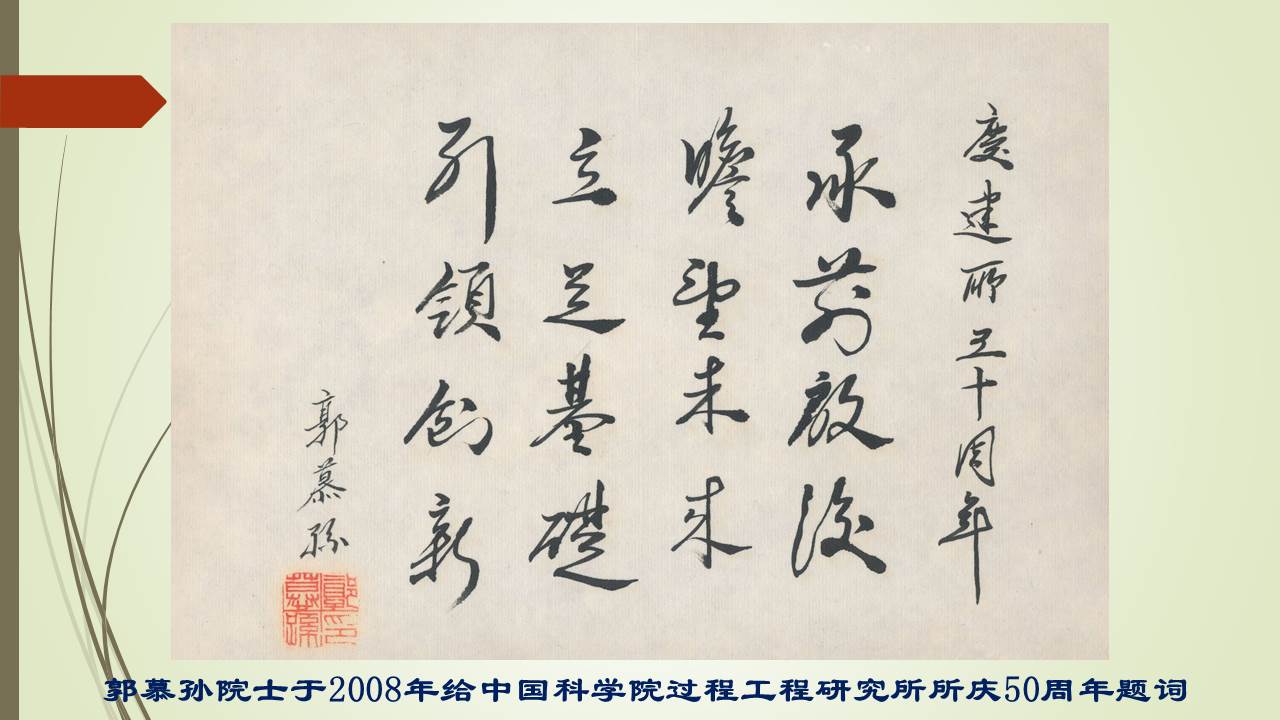 慶建所五十周年
承前啟後
瞻望未来
立足基礎
引領創新
郭慕孫
郭慕孫印
郭慕孙院士于2008年给中国科学院过程工程研究所所庆50周年题词